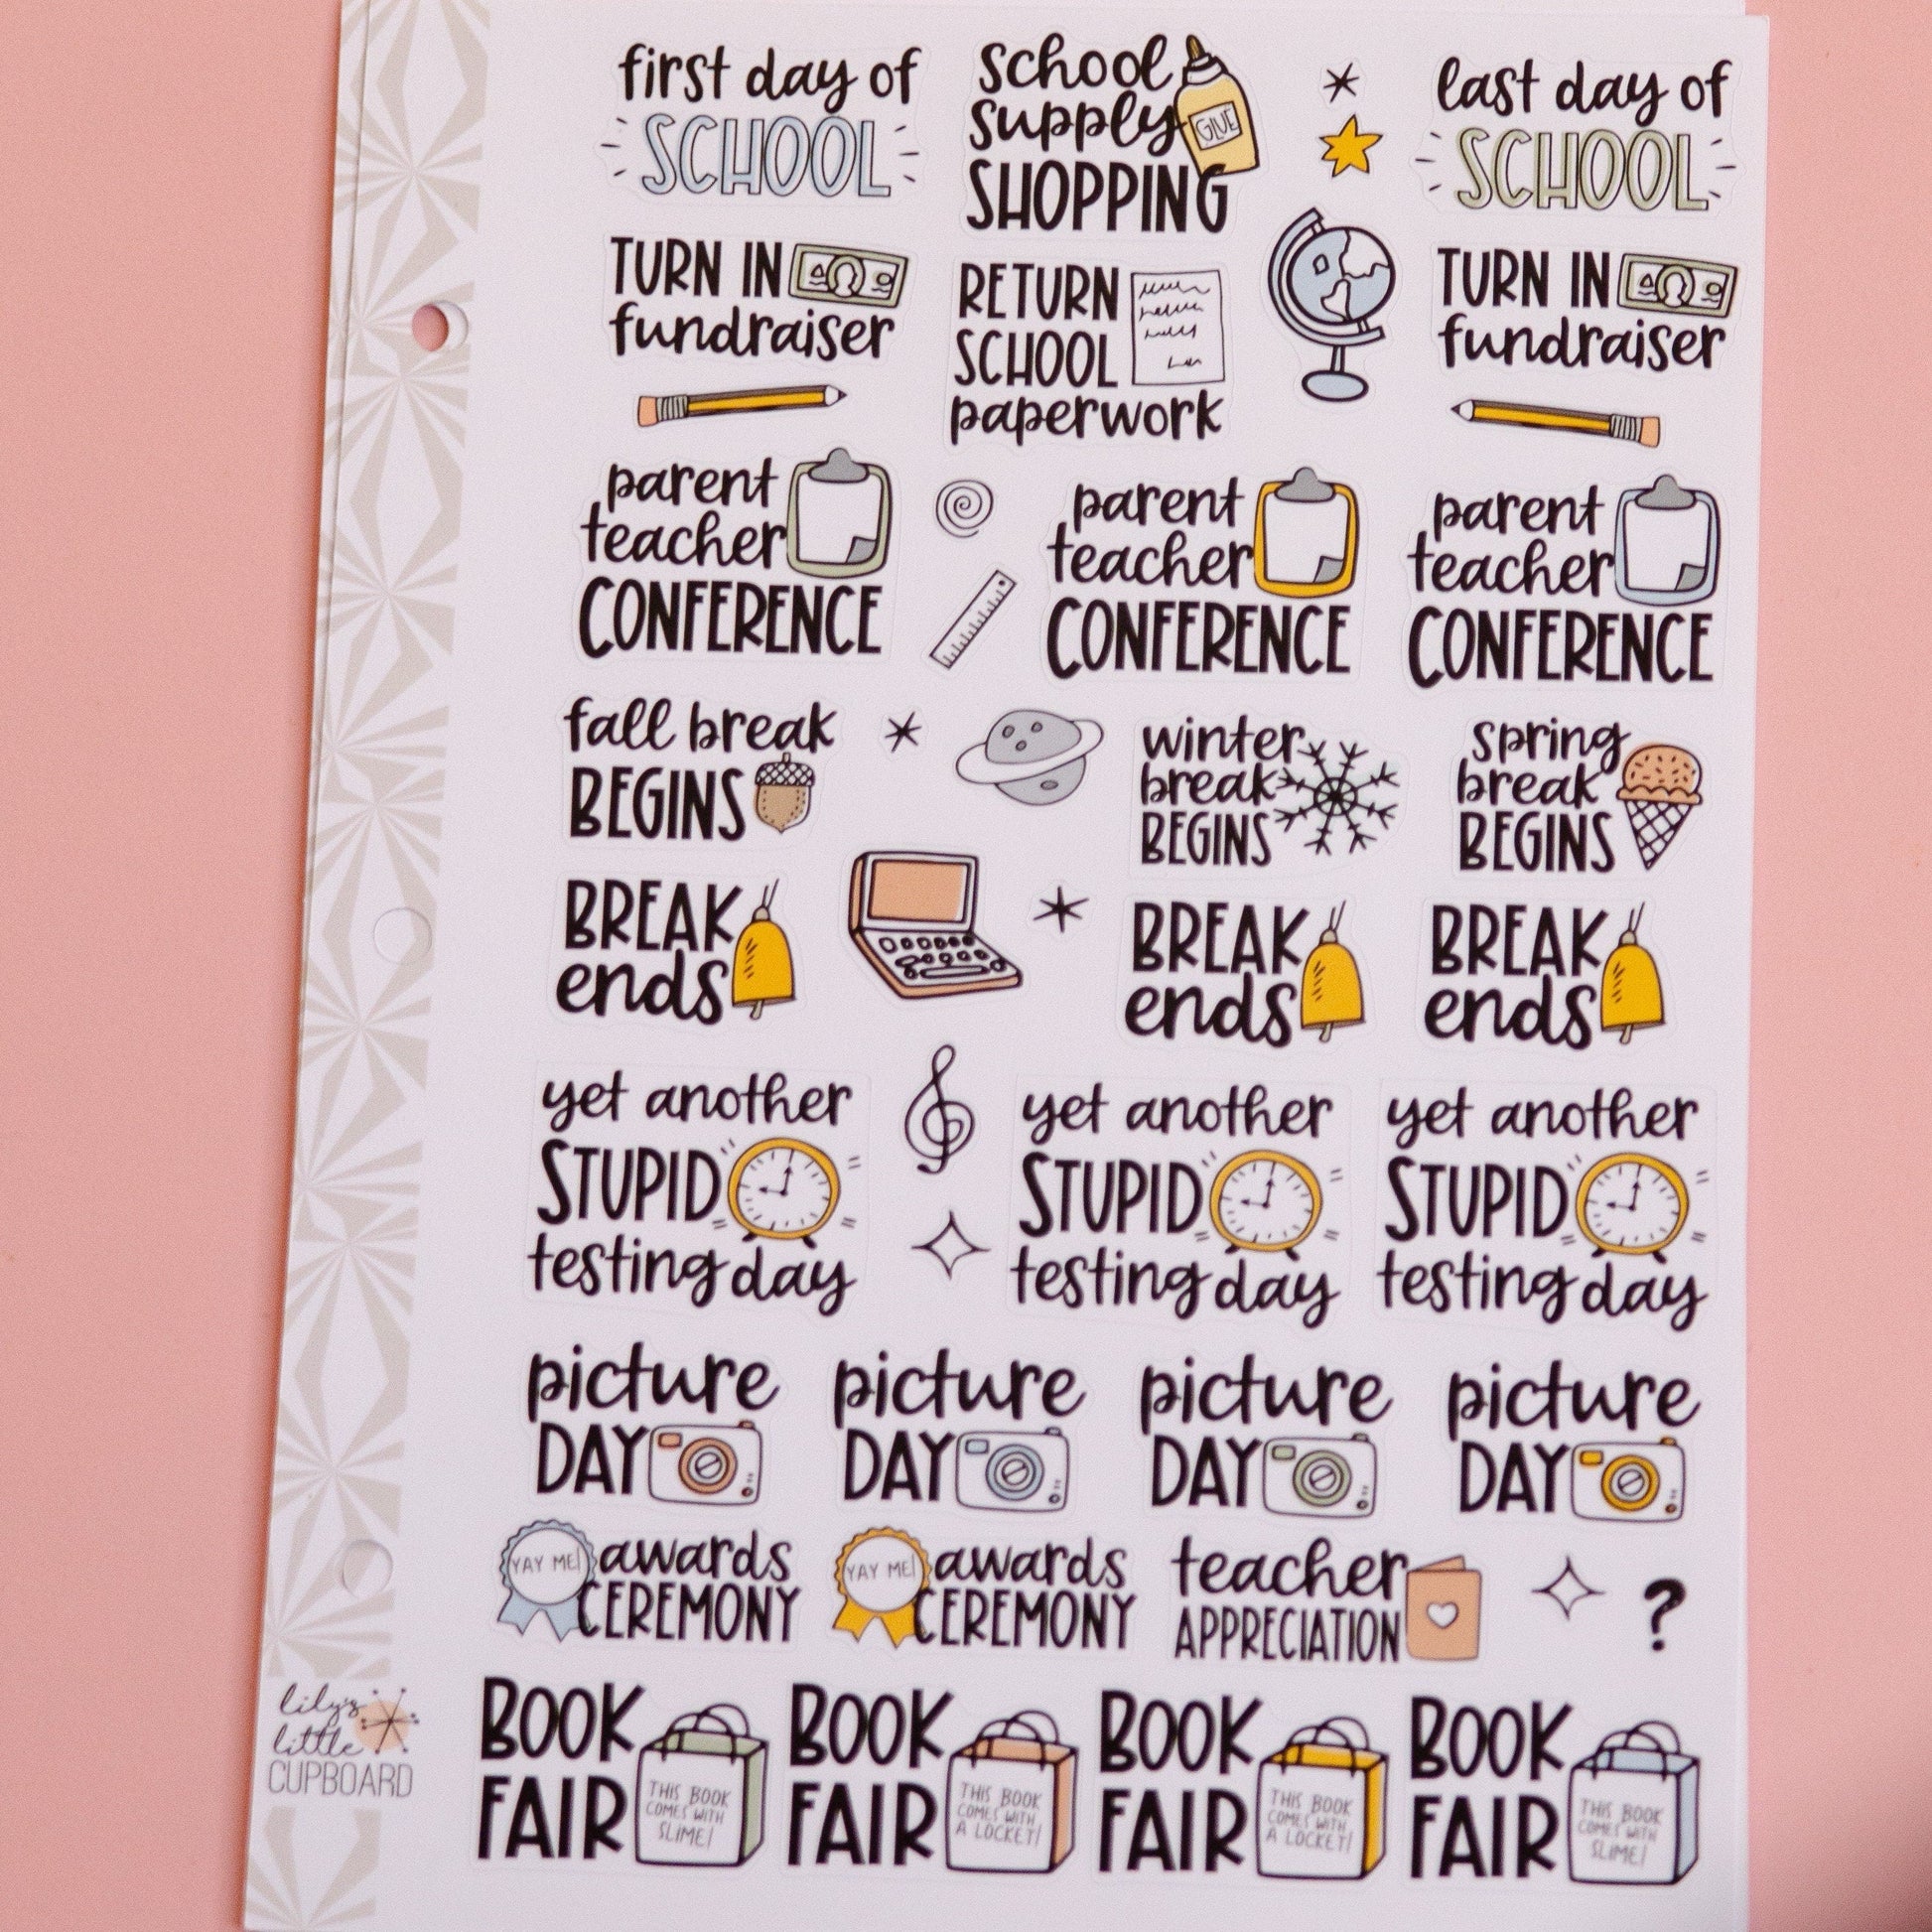 first day of
SCHOOL
school
supply
SHOPPING
GLUE
last day of
SCHOOL
TURN IN
fundraiser
RETURN
SCHOOL
paperwork
TURN IN
fundraiser
parent
teacher
CONFERENCE
parent
teacher
CONFERENCE
parent
teacher
CONFERENCE
fall break
BEGINS
winter
break
BEGINS
spring
break
BEGINS
BREAK
ends
BREAK
ends
BREAK
ends
yet another
STUPID
testing day
yet another
STUPID
testing day
yet another
STUPID
testing day
picture
DAY
picture
DAY
picture
DAY
picture
DAY
YAY ME!
awards
CEREMONY
YAY ME!
awards
CEREMONY
teacher
APPRECIATION
?
BOOK
FAIR
THIS BOOK
COMES WITH
SLIME!
BOOK
FAIR
THIS BOOK
COMES WITH
A LOCKET!
BOOK
FAIR
THIS BOOK
COMES WITH
A LOCKET!
BOOK
FAIR
THIS BOOK
COMES WITH
SLIME!
lily's
little
CUPBOARD